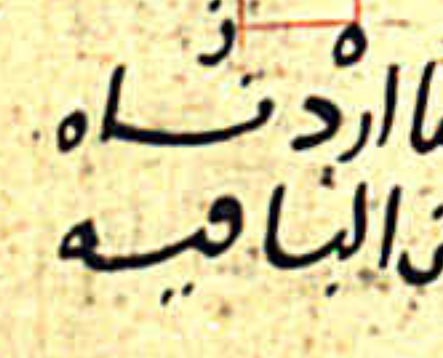 ه ز
ما اردناه
الباقيه